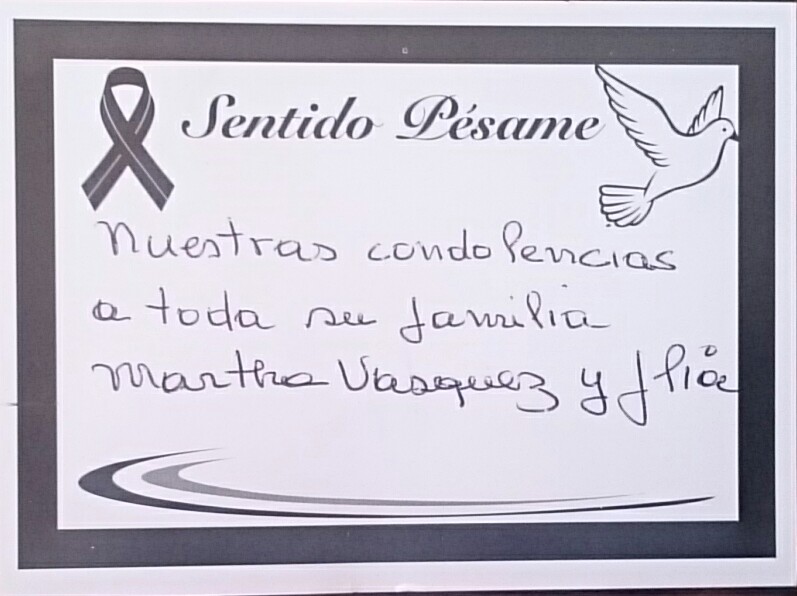 Sentido Pésame
Nuestras condolencias
a toda su familia
Martha Vasquez y flia